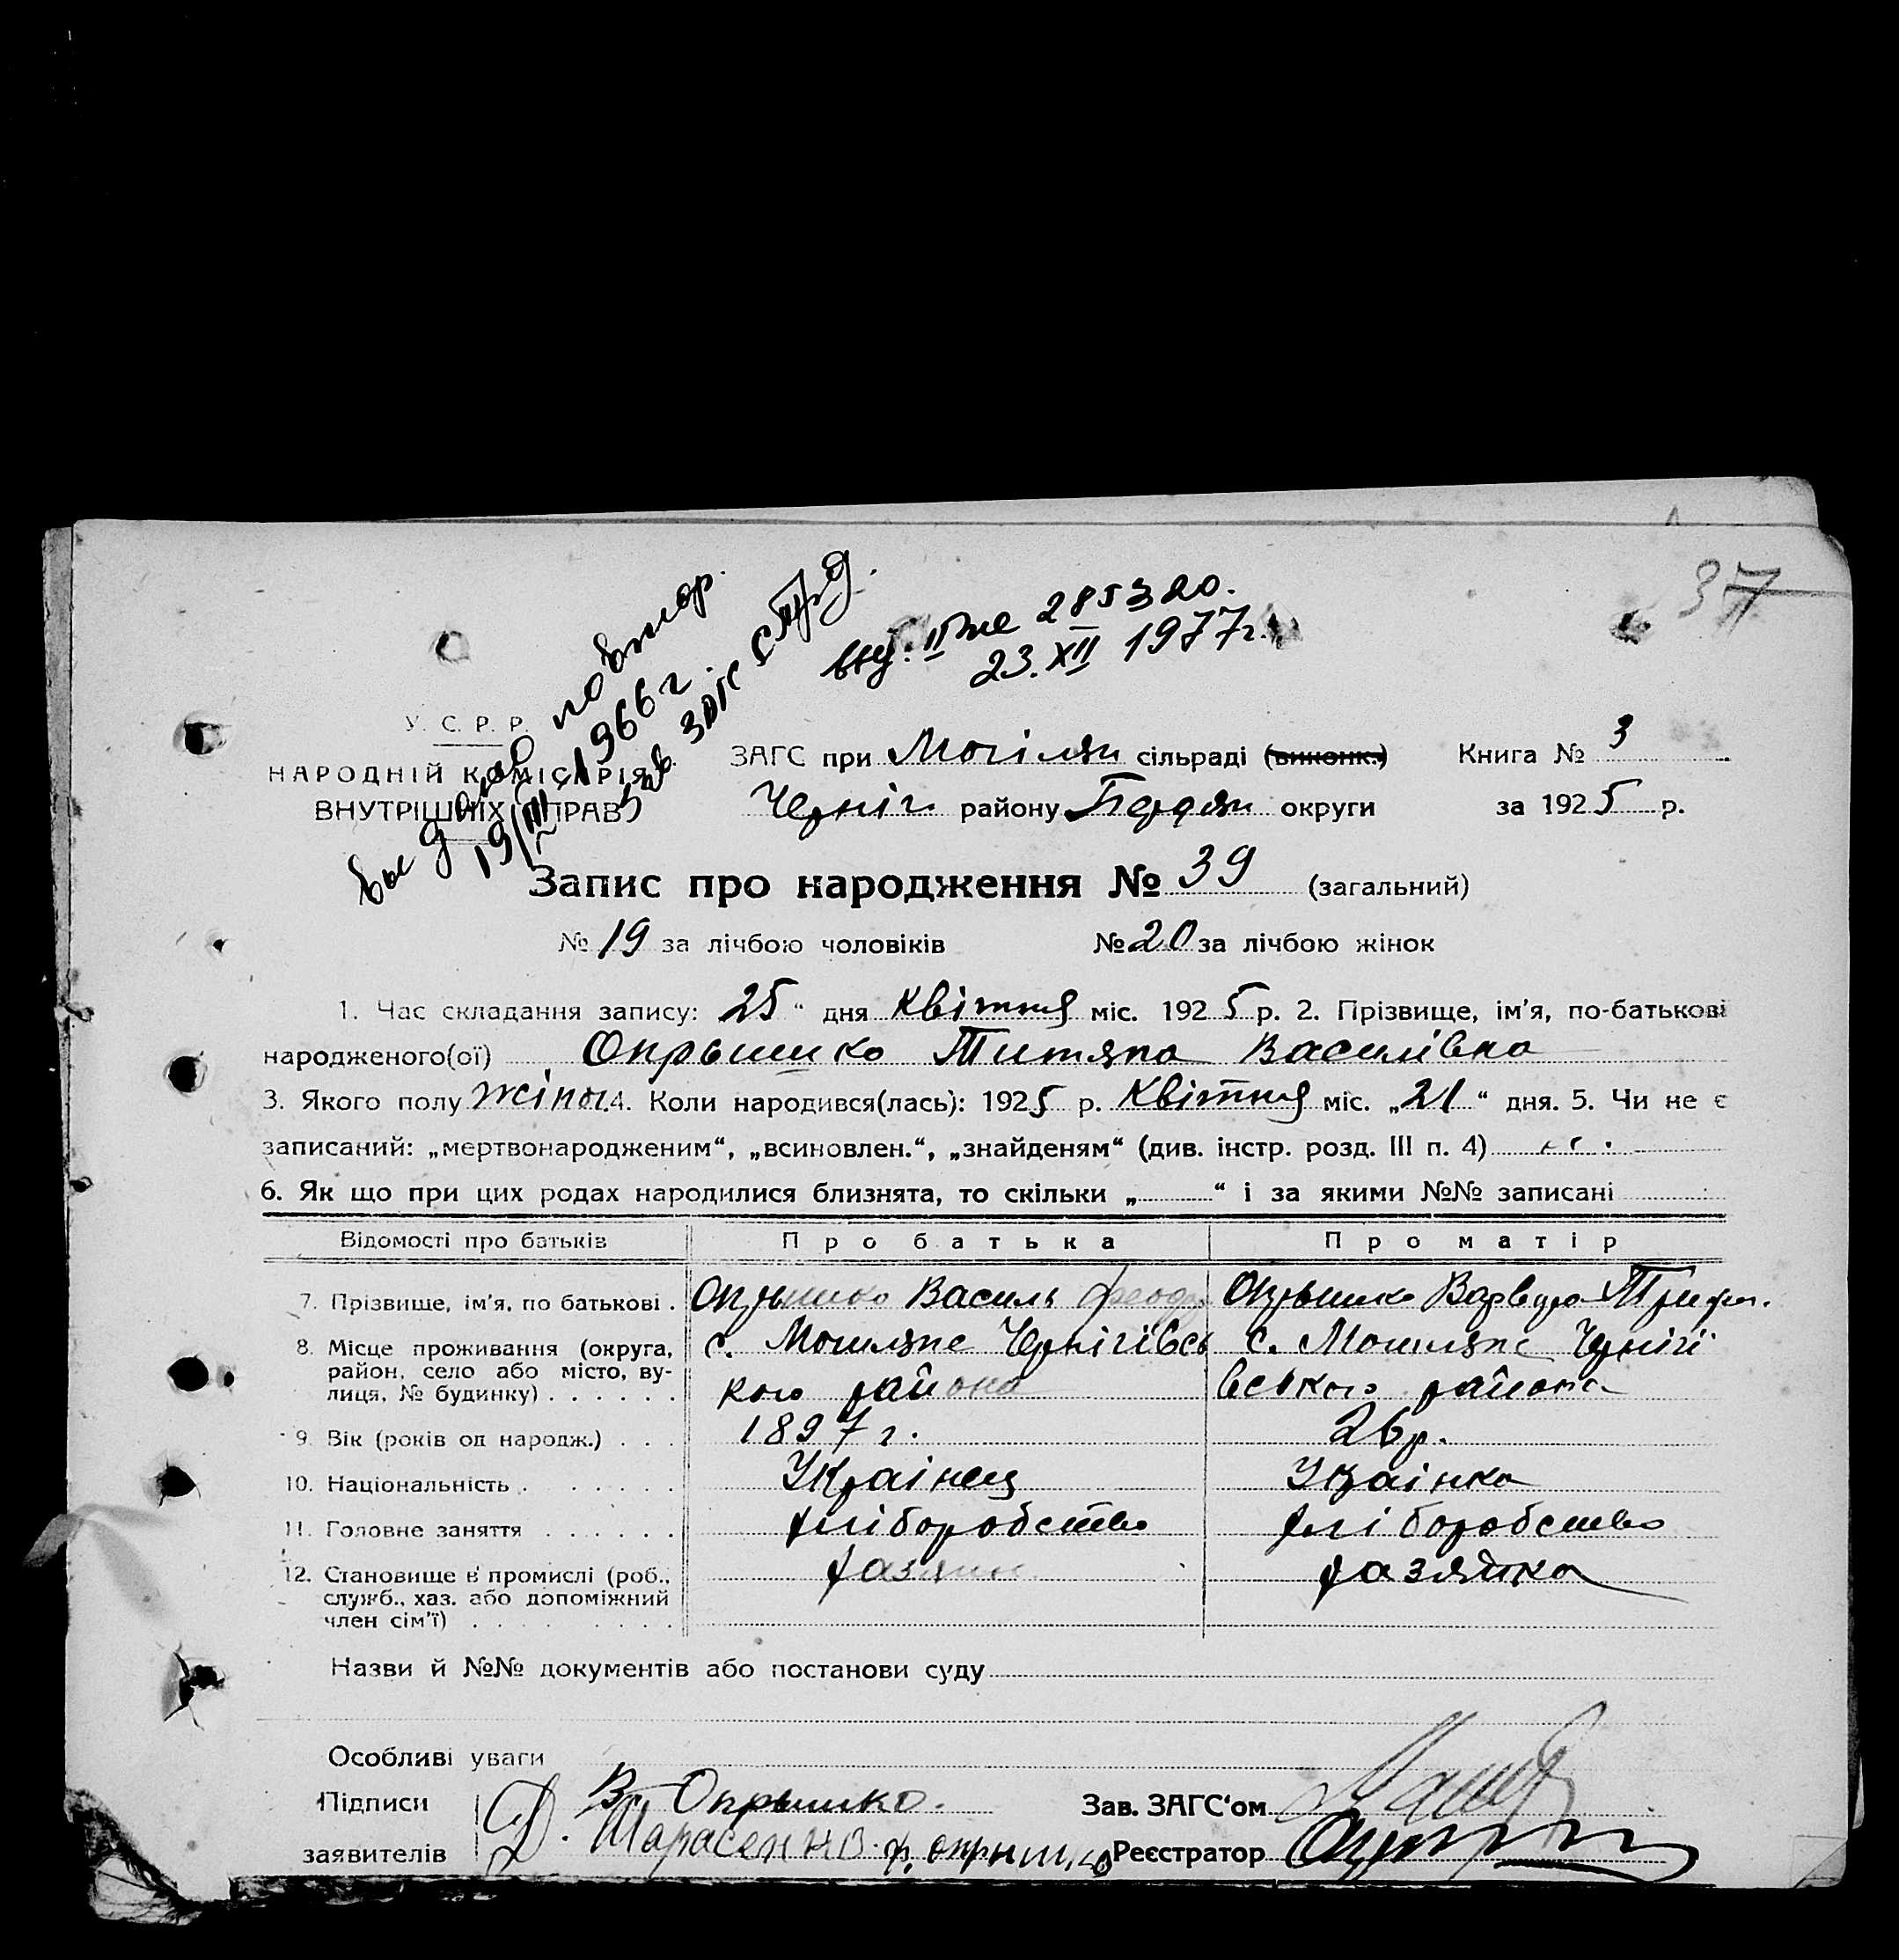 37
выдано повтор.
19/III 1966 г.
ЗАГС
II 285320.
23. XII 1977 г.
У. С. Р. Р.
НАРОДНІЙ КОМІСАРІЯТ
ВНУТРІШНІХ СПРАВ
ЗАГС при Могілян сільраді (виконк.) Книга № 3
Черніг району Бердян округи за 1925 р.
Запис про народження № 39 (загальний)
№ 19 за лічбою чоловіків № 20 за лічбою жінок
1. Час складання запису: 25 “ дня Квітня міс. 1925 р. 2. Прізвище, ім’я, по-батькові
народженого(ої) Опрышко Титяна Василівна
3. Якого полу жіноч. 4. Коли народився(лась): 1925 р. Квітня міс. „21“ дня. 5. Чи не є
записаний: „мертвонародженим“, „всиновлен.“, „знайденям“ (див. інстр. розд. III п. 4)
6. Як що при цих родах народилися близнята, то скільки „ “ і за якими №№ записані
Відомості про батьків Про батька Про матір
7. Прізвище, ім’я, по батькові . Опрышко Василь Феодр Опрышко Варвара Триф.
8. Місце проживання (округа, район, село або місто, вулиця, № будинку) с. Могиляне Чернігівсь с. Могиляне Чернігі
кого района вського района
9. Вік (років од народж.) . . . 1897 г. 26 р.
10. Національність . Украінец Украінка
11. Головне заняття хліборобство хліборобство
12. Становище в промислі (роб., хазяин хазяйка
служб., хаз. або допоміжний
член сім’ї)
Назви й №№ документів або постанови суду
Особливі уваги
Підписи В. Опрышко. Зав. ЗАГС‘ом
заявителів Д. Тарасенко Ф. Опрышко Реєстратор